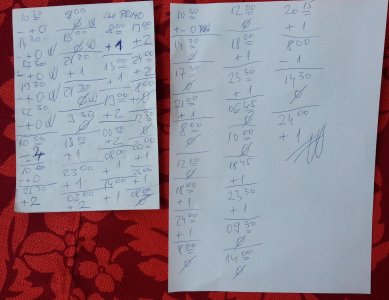 10 30
+ 0
14 30
+ 0
17 30
+ 0
19 30
+ 0
22 30
+ 0
10 30
- 4
10 00
+ 0
21 30
+ 2
9 00
Ø
13 00
Ø
21 30
+ 1
21 30
Ø
9 30
Ø
18 50
+ 1
23 00
+ 1
02 00
+ 2
8 00
+ 1
13 00
+ 1
19 00
+ 2
08 00
+ 1
15 00
+ 1
17 00
+ 2
24 00
+ 2
8 00
+ 0
12 30
Ø
+ 1
20 00
+ 1
08 00
Ø
10 30
+ 0
14 30
Ø
17 30
Ø
21 00
+ 1
8 00
Ø
12 00
Ø
18 00
+ 1
24 00
+ 1
8 00
Ø
12 00
Ø
18 00
+ 1
23 30
+ 1
06 45
Ø
10 00
Ø
18 45
+ 1
23 30
+ 1
09 30
Ø
14 00
Ø
20 15
+ 1
8 00
- 1
14 30
Ø
24 00
+ 1